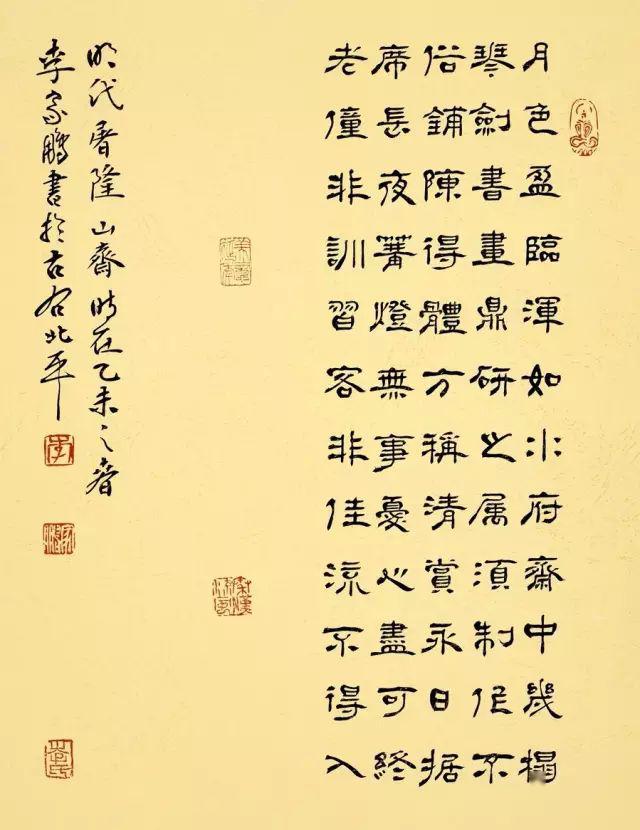 月色盈臨渾如水府齋中幾榻
琴劍書畫鼎研之属須制作不
俗鋪陳得體方稱清賞永日据
席長夜篝燈無事憂心盡可終
老僮非訓習客非佳流不得入
明代屠隆山齋時在乙未之春
李家鵬書於古右北平
李